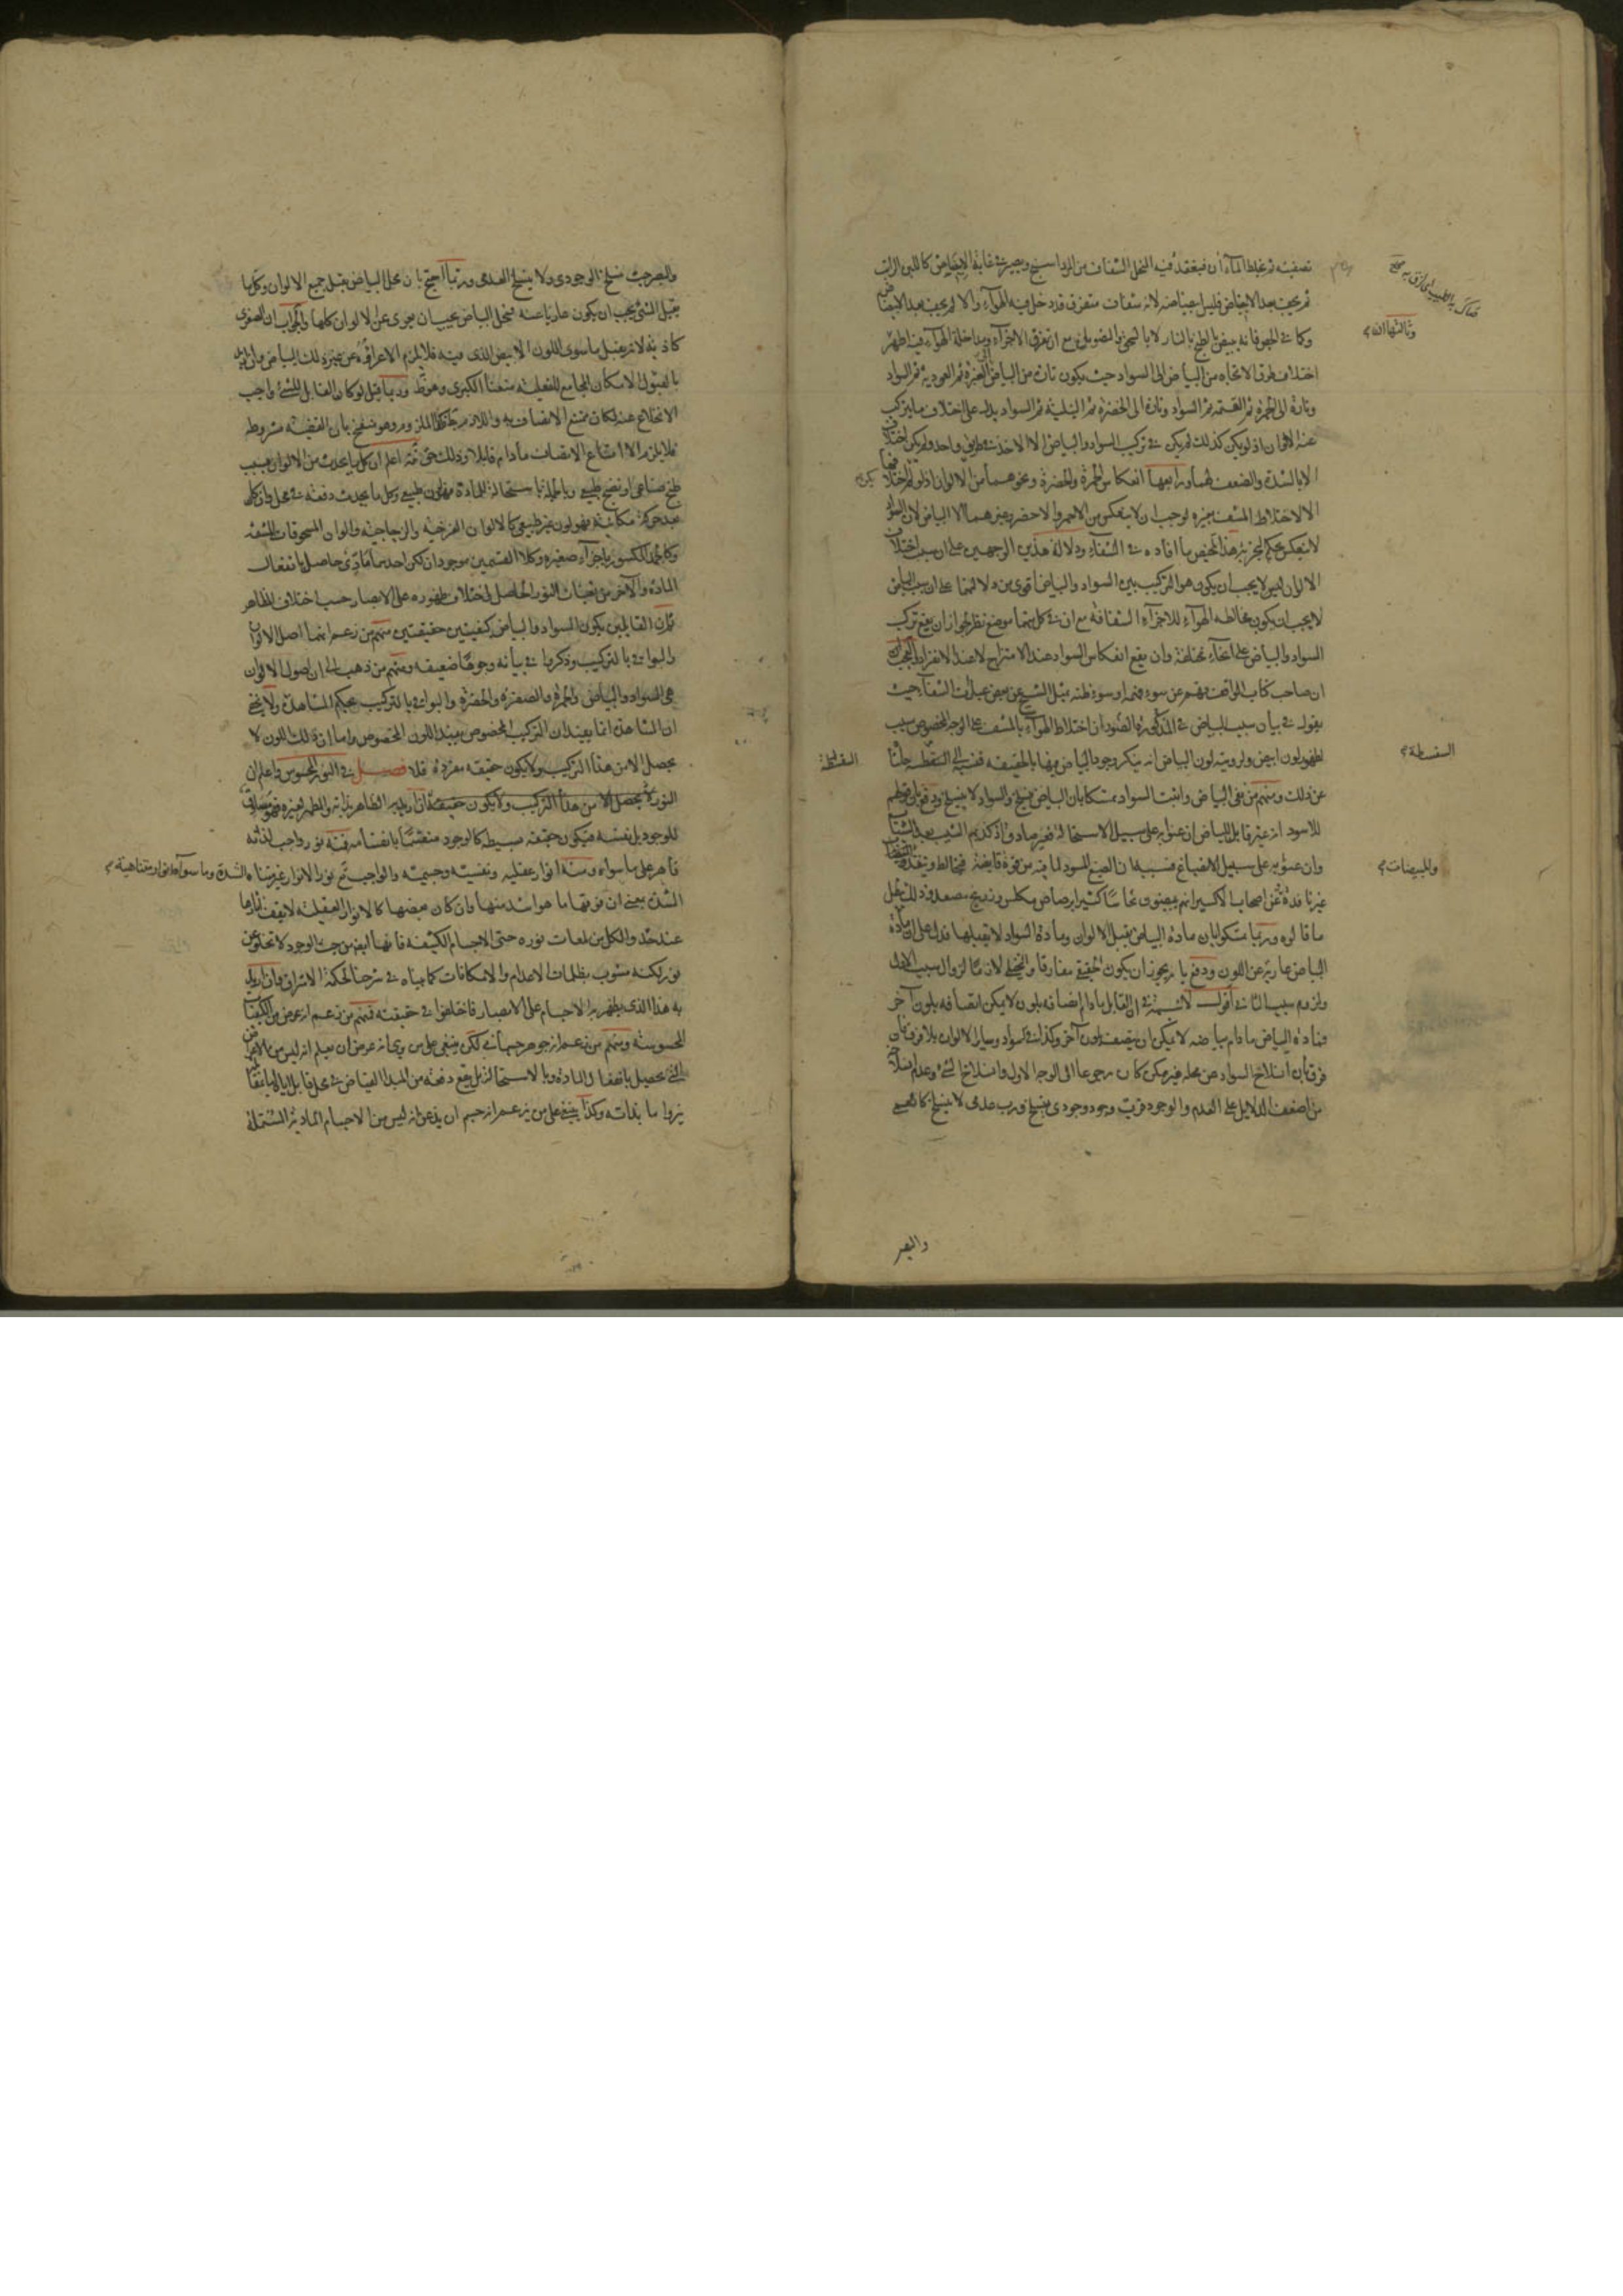 تصفيته ثم يخلط الماءان فينعقد فيه المنحل الشفاف من المرداسنج ويصير في غاية الابيضاض كاللبن الرائب
ثم يجف بعد الابيضاض فليس ابيضاضه لانه شفاف متفرق قد دخل فيه الهواء والا لم يجف بعد الابيضاض
وثالثها انه
وكما في الجص فانه يبيض بالطبخ بالنار لا بالسحق والتصويل مع ان تفرق الاجزاء ومداخلة الهواء فيه اظهر
اختلاف طرق الاتجاه من البياض الى السواد حيث يكون تارة من البياض الى الغبرة ثم العودية ثم السواد
وتارة الى الحمرة ثم القتمة ثم السواد وتارة الى الخضرة ثم النيلية ثم السواد يدل على اختلاف ما يتركب
عنه الالوان اذ لو لم يكن كذلك لم يكن في تركيب السواد والبياض الا الاخذ في طريق واحد ولم يكن اختلاف
الا بالشدة والضعف فيهما ورابعها انعكاس الحمرة والخضرة ونحوهما من الالوان اذ لو لم اختلافها
الا لاختلاط المشف بغيره لوجب ان لا ينعكس من الاحمر والاخضر وغيرهما الا البياض لان السواد
لا ينعكس بحكم التجربة هذا تلخيص ما افاده في الشفاء ودلالة هذين الوجهين على ان سبب اختلاف
الالوان ليس لا يجب ان يكون هو التركيب بين السواد والبياض اقوى من دلالتهما على ان سبب البياض
لا يجب ان يكون مخالطة الهواء للاجزاء الشفافة مع ان في كل منهما موضع نظر لجواز ان يقع تركب
السواد والبياض على انحاء مختلفة وان يقع انعكاس السواد عند الامتزاج لا عند الانفراد والعجب
ان صاحب كتاب المواقف فهم من سوء فهمه او سوء ظنه بمثل الشيخ من بعض عبارات الشفاء حيث
يقول في بيان سبب البياض في المذكورة والصور ان اختلاط الهواء بالمشف على الوجه المخصوص سبب
السفسطة
لظهور لون ابيض ولرؤية لون البياض انه ينكر وجود البياض فيها بالحقيقة فنسبه الى السفسطة حاشا
عن ذلك ومنهم من نفى البياض واثبت السواد متمسكا بان البياض ينسلخ والسواد لا ينسلخ ودفع بان قولهم
للاسود انه غير قابل للبياض ان عنوا به على سبيل الاستحالة فغير صادق اذ كذبهم الشيب بعد الشباب
وللمبيضات
وان عنوا به على سبيل الانصباغ فسببه ان الصبغ المسود لما فيه من قوة قابضة فيخالط وينفذ
غير نافذة عن اصحاب الاكسير انهم يبيضون نحاسا كثيرا برصاص مكلس وزرنيخ مصعد فدلك يبطل
ما قالوه وربما تمسكوا بان مادة البياض يقبل الالوان ومادة السواد لا يقبلها فدل على ان مادة
البياض عارية عن اللون ودفع بانه يجوز ان يكون الحقيقي مفارقا والتخيلي لازما لزوال سبب الاول
ولزوم سبب الثاني اقول لا شبهة في ان القابل ما دام اتصافه بلون لا يمكن اتصافه بلون آخر
فمادة البياض ما دام بياضه لا يمكن ان يتصف بلون آخر وكذا في السواد وساير الالوان بلا فرق بان
فرق بان انسلاخ السواد عن محله غير ممكن كان رجوعا الى الوجه الاول وانسلاخ الشيء وعدم انسلاخه
من اضعف الدلايل على العدم والوجود فرب وجودي ينسلخ ورب عدمي لا ينسلخ كالعمى
والبصر
والبصر حيث ينسلخ الوجودي ولا ينسلخ العدمي وربما احتج بان محل البياض يقبل جميع الالوان وكل ما
يقبل الشيء يجب ان يكون عاريا عنه فمحل البياض يجب ان يعرى عن الالوان كلها والجواب ان الصغرى
كاذبة لانه يقبل ما سوى اللون الابيض الذي فيه فلا يلزم الا عراؤه عن غير ذلك البياض وان اريد
بالقبول الامكان الجامع للفعلية منعنا الكبرى وهو ظ وربما قيل لو كان القابل للشيء واجب
الانخلاع عنه لكان ممتنع الاتصاف به واللازم بط فكذا الملزوم وهو ضعيف بان القضية مشروطة
فلا يلزم الا امتناع الاتصاف ما دام قابلا وذلك حق ثم اعلم ان كل ما يحدث من الالوان بسبب
طبخ صناعي او نضج طبيعي وبالجملة باستحالة للمادة فهو لون طبيعي وكل ما يحدث دفعة في محل واو كان
بعد حركة مكانية فهو لون غير طبيعي كالالوان القزحية والزجاجية والوان المسحوقات المشفة
وكالجمد المكسور باجزاء صغيرة وكلا القسمين موجود ان لكن احدهما مادي حاصل بانفعال
المادة والآخر من تعينات النور الحاصل لاختلاف ظهوره على الابصار حسب اختلاف المظاهر
ثم ان القايلين بكون السواد والبياض كيفيتين حقيقتين منهم من زعم انهما اصل الالوان
والبواقي بالتركيب وذكروا في بيانه وجوها ضعيفة ومنهم من ذهب الى ان اصول الالوان
هي السواد والبياض والحمرة والصفرة والخضرة والبواقي بالتركيب بحكم المشاهدة ولا يخفى
ان المشاهدة انما يفيد ان التركيب المخصوص يفيد اللون المخصوص واما ان ذلك اللون لا
يحصل الا من هذا التركيب ولا يكون حقيقة مفردة فلا فصـــل في النور المحسوس واعلم ان
النور لا يحصل الا من هذا التركيب ولا يكون حقيقة ان اريد به الظاهر بذاته والمظهر لغيره فهو مساوق
للوجود بل نفسه فيكون حقيقة بسيطة كالوجود منقسما بانقسامه فمنه نور واجب لذاته
قاهر على ما سواه ومنه انوار عقلية ونفسية وجسمية والواجب تع نور الانوار غير متناه الشدة وما سواه انوار متناهية
الشدة بمعنى ان فوقها ما هو اشد منها وان كان بعضها كالانوار العقلية لا يقف آثارها
عند حد والكل من لمعات نوره حتى الاجسام الكثيفة فانها ايض من حيث الوجود لا تخلو عن
نور لكنه مشوب بظلمات الاعدام والامكانات كما بيناه في شرحنا لحكمة الاشراق وان اريد
به هذا الذي يظهر به الاجسام على الابصار فاختلفوا في حقيقته فمنهم من زعم انه عرض من الكيفيات
المحسوسة ومنهم من زعم انه جوهر جسماني لكن ينبغي على من يرى انه عرض ان يعلم انه ليس من الاعراض
التي يحصل بانفعال المادة وبالاستحالة بل يقع دفعة من المبدا الفياض في محل قابل
بذاته وكذا ينبغي على من يزعم انه جسم ان يذعن انه ليس من الاجسام المادية المشتملة